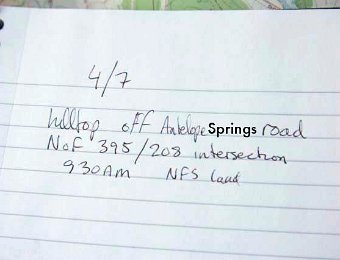 4/7
hilltop off Antelope Springs road
NoF 395/208 intersection
930Am NFS land